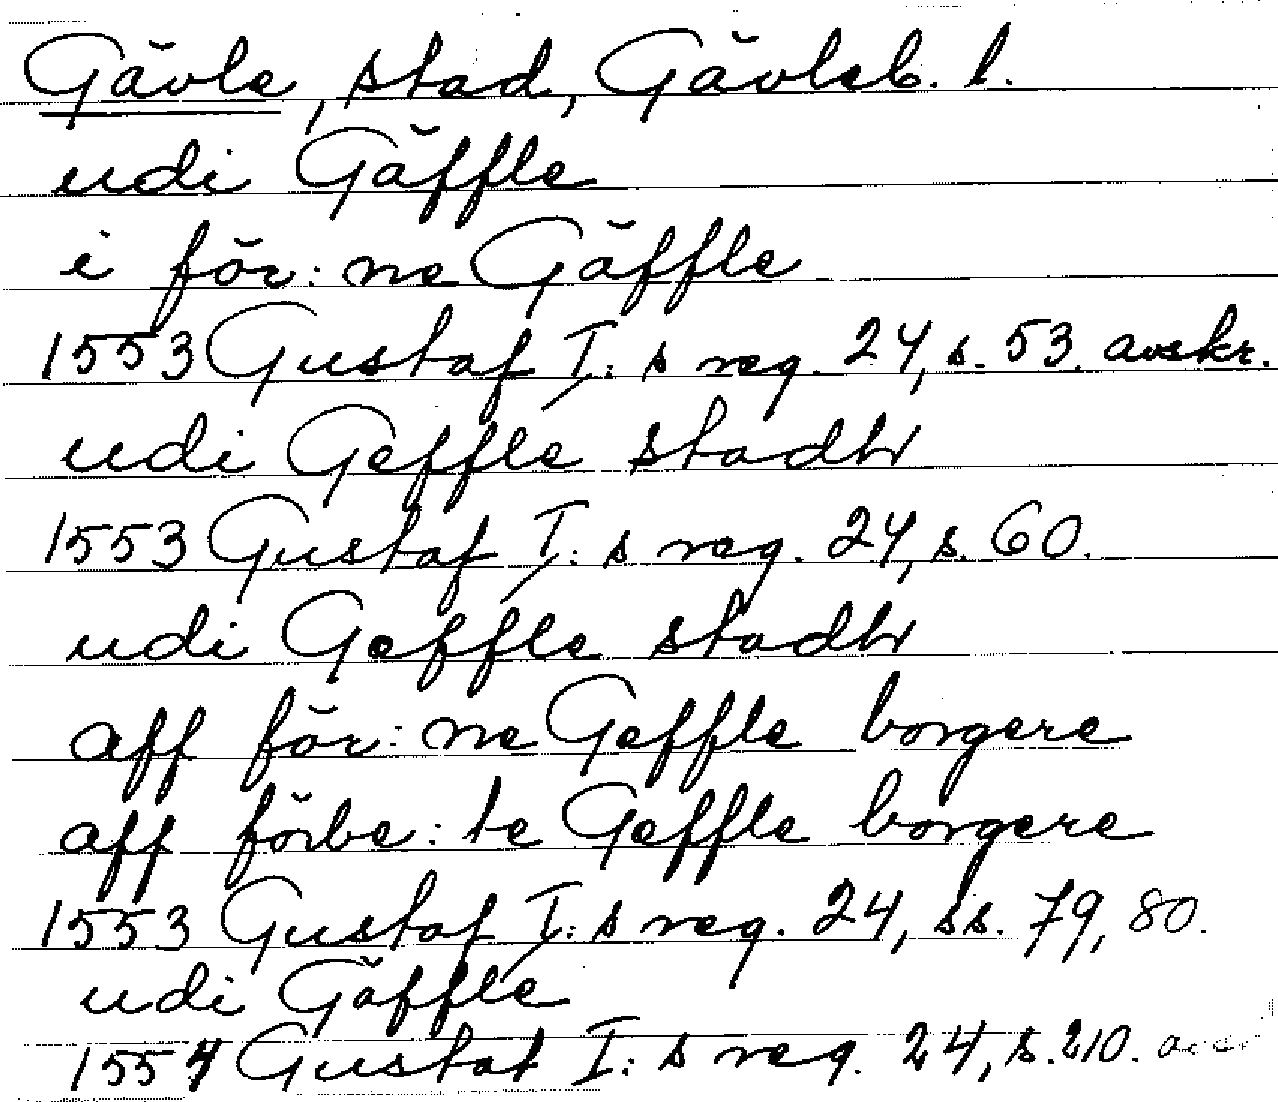 Gävle, stad, Gävleb. l.
udi Gäffle
i för:ne Gäffle
1553 Gustaf I:s reg. 24, s. 53. avskr.
udi Geffle stadh
1553 Gustaf I:s reg. 24, s. 60.
udi Geffle stadh
aff för:ne Geffle borgere
aff förbe:te Geffle borgere
1553 Gustaf I:s reg. 24, ss. 79, 80.
udi Gäffle
1554 Gustaf I:s reg. 24, s. 210.